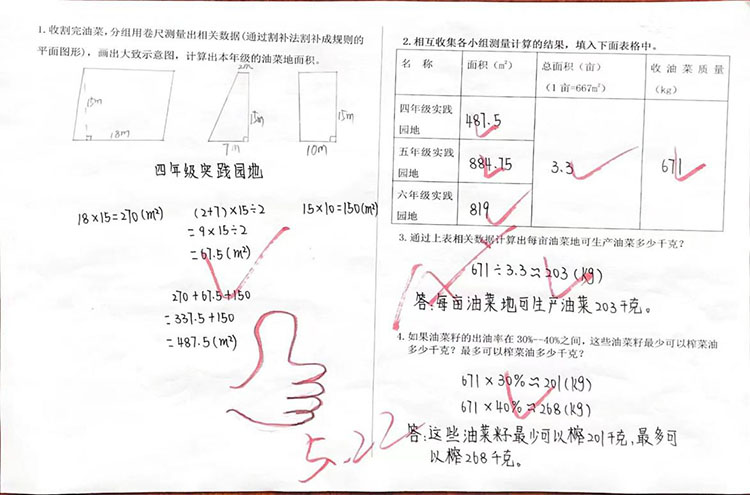 1.收割完油菜,分组用卷尺测量出相关数据(通过割补法割补成规则的
平面图形),画出大致示意图,计算出本年级的油菜地面积。
15m
18m
2m
15m
7m
15m
10m
四年级实践园地
18×15=270(m²)
(2+7)×15÷2
=9×15÷2
=67.5(m²)
15×10=150(m²)
270+67.5+150
=337.5+150
=487.5(m²)
5.22
2.相互收集各小组测量计算的结果,填入下面表格中。
名 称 面积(m²) 总面积(亩) 收油菜质量
(1亩=667m²) (kg)
四年级实践
园地 487.5
五年级实践
园地 884.75 3.3 671
六年级实践
园地 819
3.通过上表相关数据计算出每亩油菜地可生产油菜多少千克?
671÷3.3≈203(kg)
答:每亩油菜地可生产油菜203千克。
4.如果油菜籽的出油率在30%--40%之间,这些油菜籽最少可以榨菜油
多少千克?最多可以榨菜油多少千克?
671×30%≈201(kg)
671×40%≈268(kg)
答:这些油菜籽最少可以榨201千克,最多可
以榨268千克。